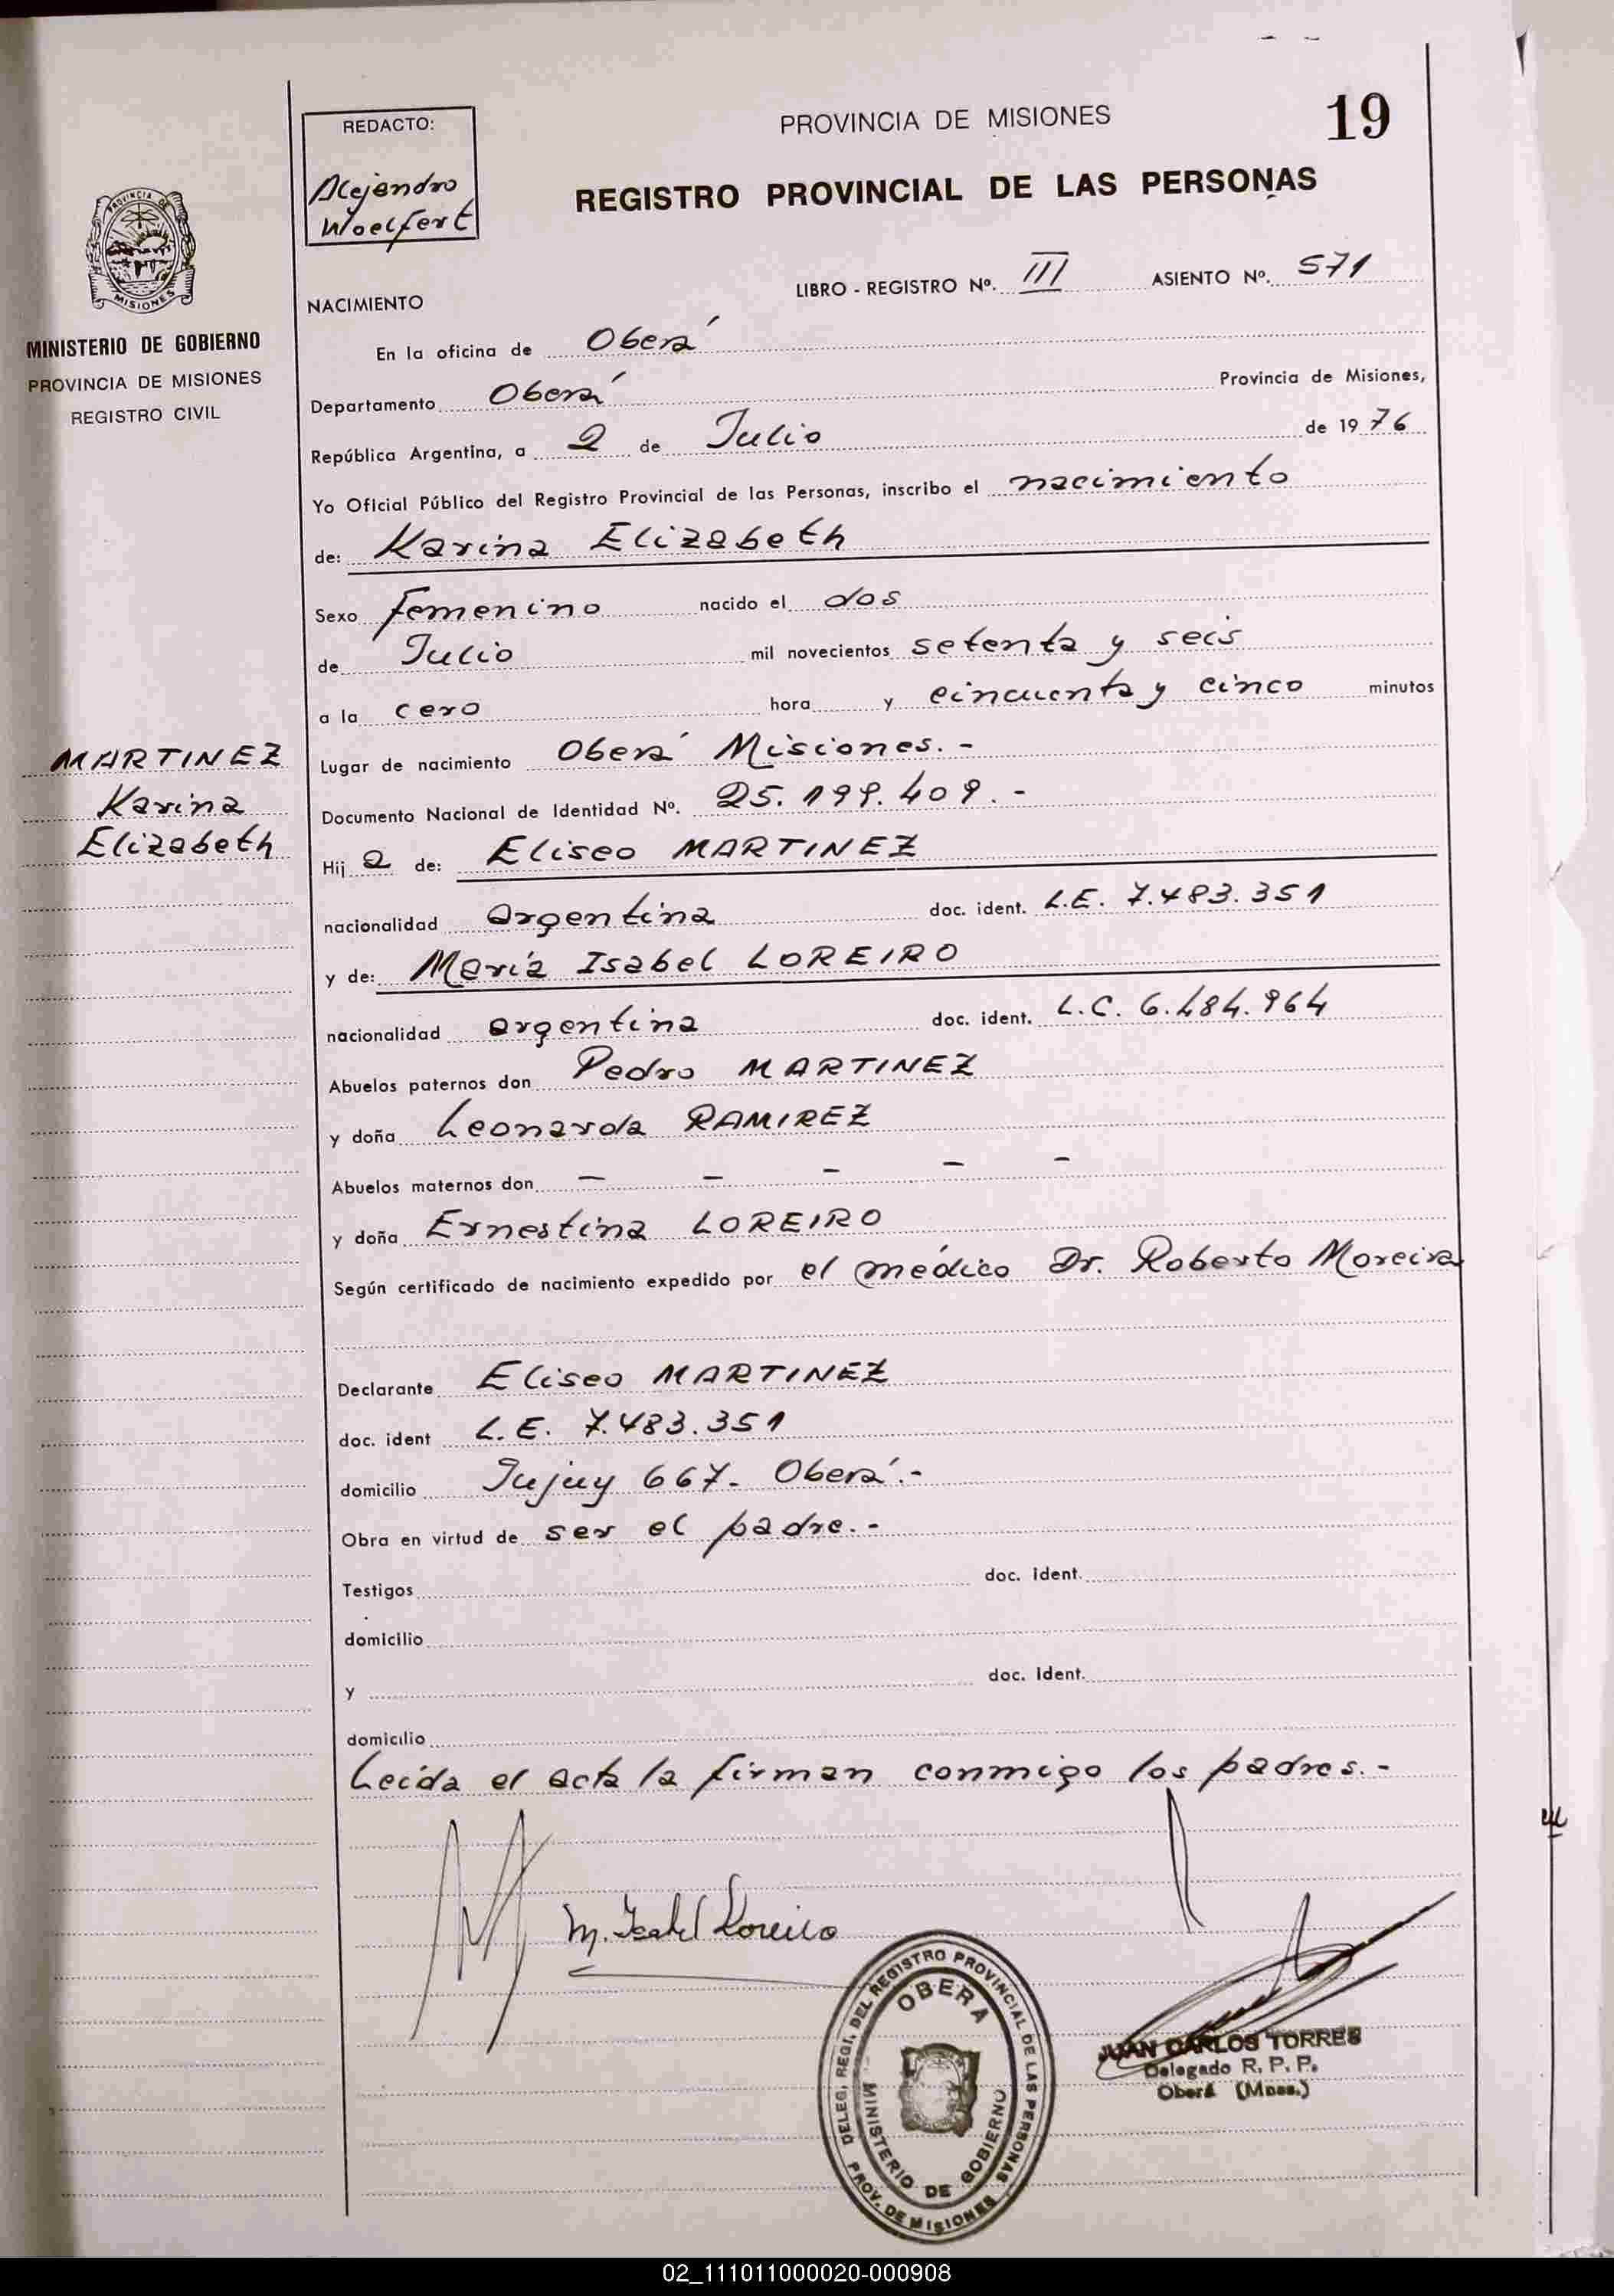 PROVINCIA DE MISIONES
19
REDACTO:
Alejandro
Woelfert
REGISTRO PROVINCIAL DE LAS PERSONAS
PROVINCIA DE
MISIONES
MINISTERIO DE GOBIERNO
PROVINCIA DE MISIONES
REGISTRO CIVIL
LIBRO - REGISTRO Nº. III ASIENTO Nº. 571
NACIMIENTO
En la oficina de Oberá
Departamento Oberá Provincia de Misiones,
República Argentina, a 2 de Julio de 1976
Yo Oficial Público del Registro Provincial de las Personas, inscribo el nacimiento
de: Karina Elizabeth
Sexo femenino nacido el dos
de Julio mil novecientos setenta y seis
a la cero hora y cincuenta y cinco minutos
MARTINEZ
Karina
Elizabeth
Lugar de nacimiento Oberá Misiones.-
Documento Nacional de Identidad Nº. 25.199.409.-
Hij a de: Eliseo MARTINEZ
nacionalidad argentina doc. ident. L.E. 7.483.351
y de: María Isabel LOREIRO
nacionalidad argentina doc. ident. L.C. 6.484.964
Abuelos paternos don Pedro MARTINEZ
y doña Leonarda RAMIREZ
Abuelos maternos don - - - - -
y doña Ernestina LOREIRO
Según certificado de nacimiento expedido por el médico Dr. Roberto Moreira
Declarante Eliseo MARTINEZ
doc. ident L.E. 7.483.351
domicilio Jujuy 667- Oberá.-
Obra en virtud de ser el padre.-
Testigos doc. ident.
domicilio
y doc. ident.
domicilio
Leída el acta la firman conmigo los padres.-
M. Isabel Loreiro
DELEG. REGI. DEL REGISTRO PROVINCIAL DE LAS PERSONAS
PROV. DE MISIONES
OBERA
MINISTERIO DE GOBIERNO
JUAN CARLOS TORRES
Delegado R. P. P.
Oberá (Mnes.)
02_111011000020-000908